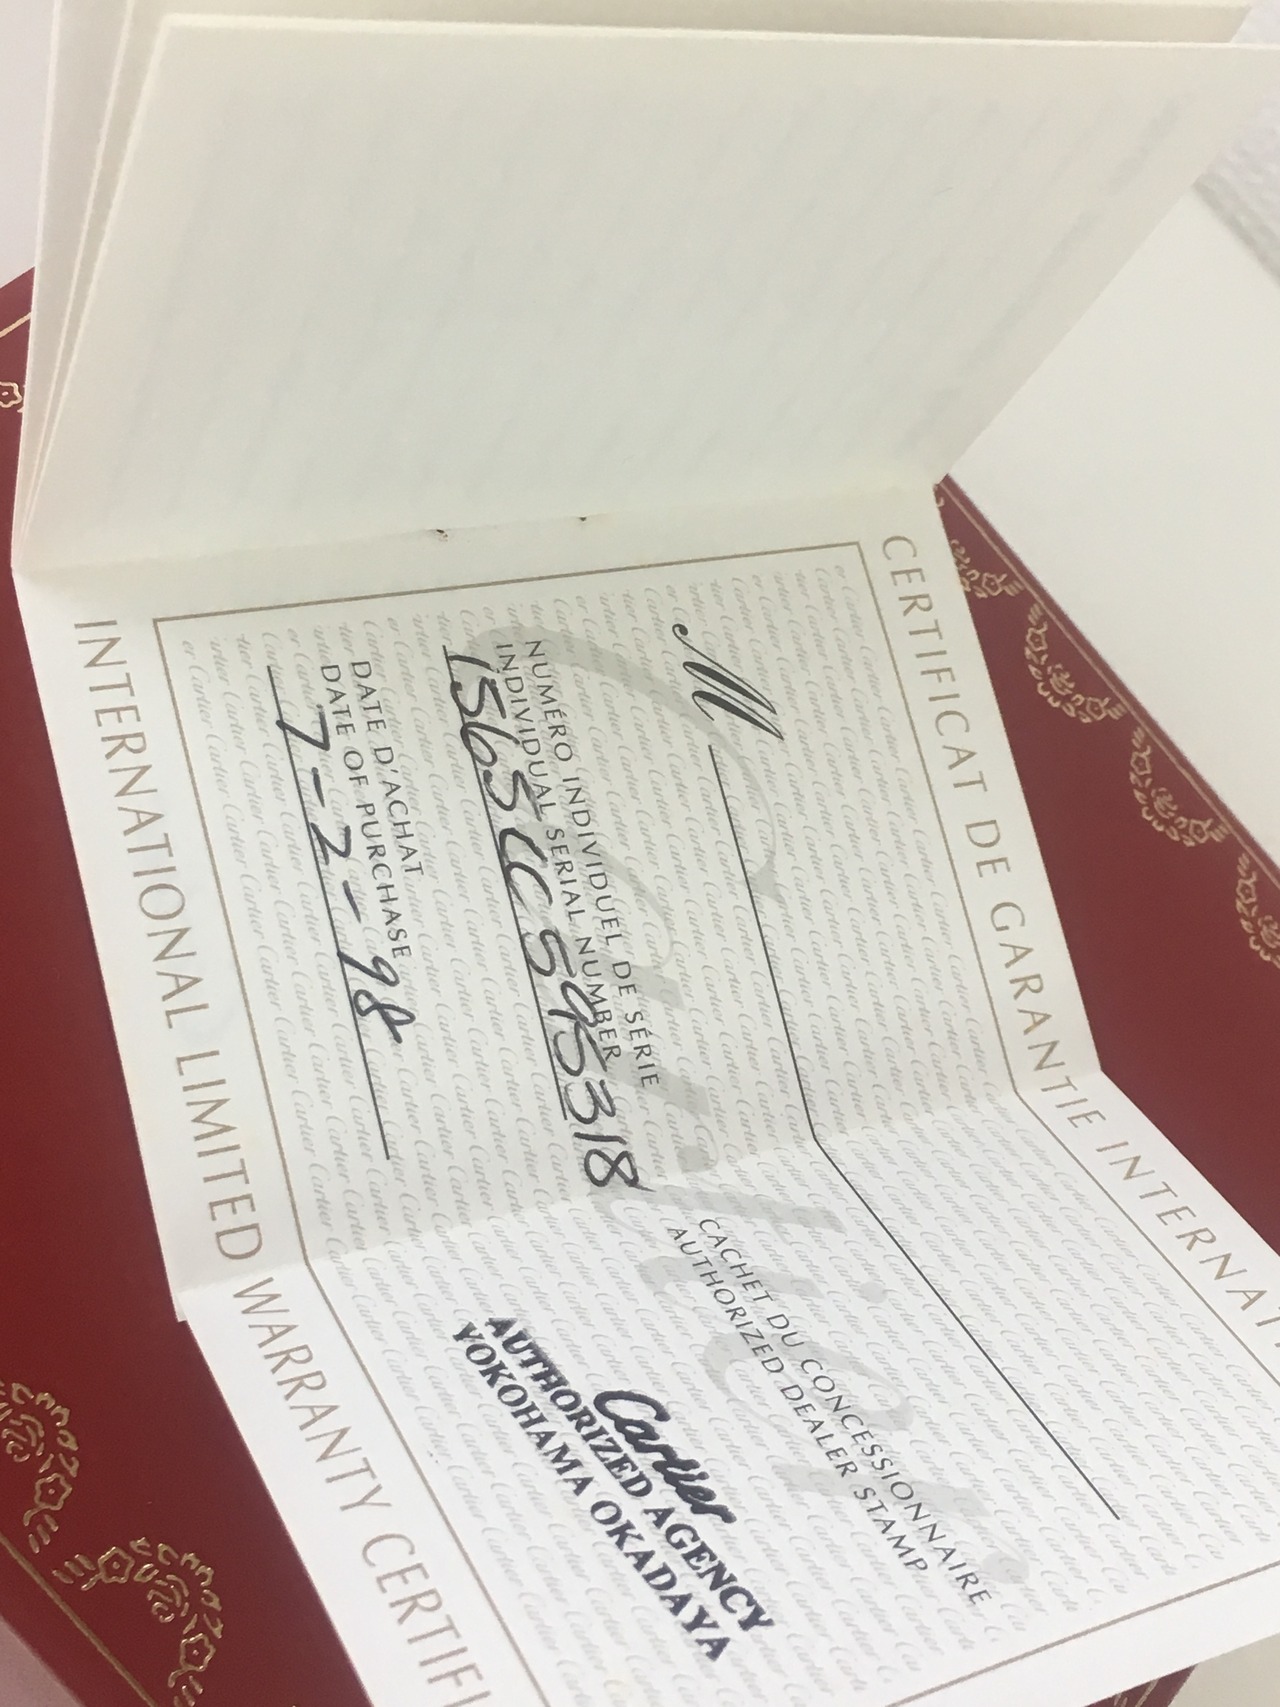 CERTIFICAT DE GARANTIE INTERNAT
M
NUMÉRO INDIVIDUEL DE SÉRIE
INDIVIDUAL SERIAL NUMBER
1565CC595318
DATE D'ACHAT
DATE OF PURCHASE
7-2-98
CACHET DU CONCESSIONNAIRE
AUTHORIZED DEALER STAMP
Cartier
AUTHORIZED AGENCY
YOKOHAMA OKADAYA
INTERNATIONAL LIMITED WARRANTY CERTIFI
Cartier